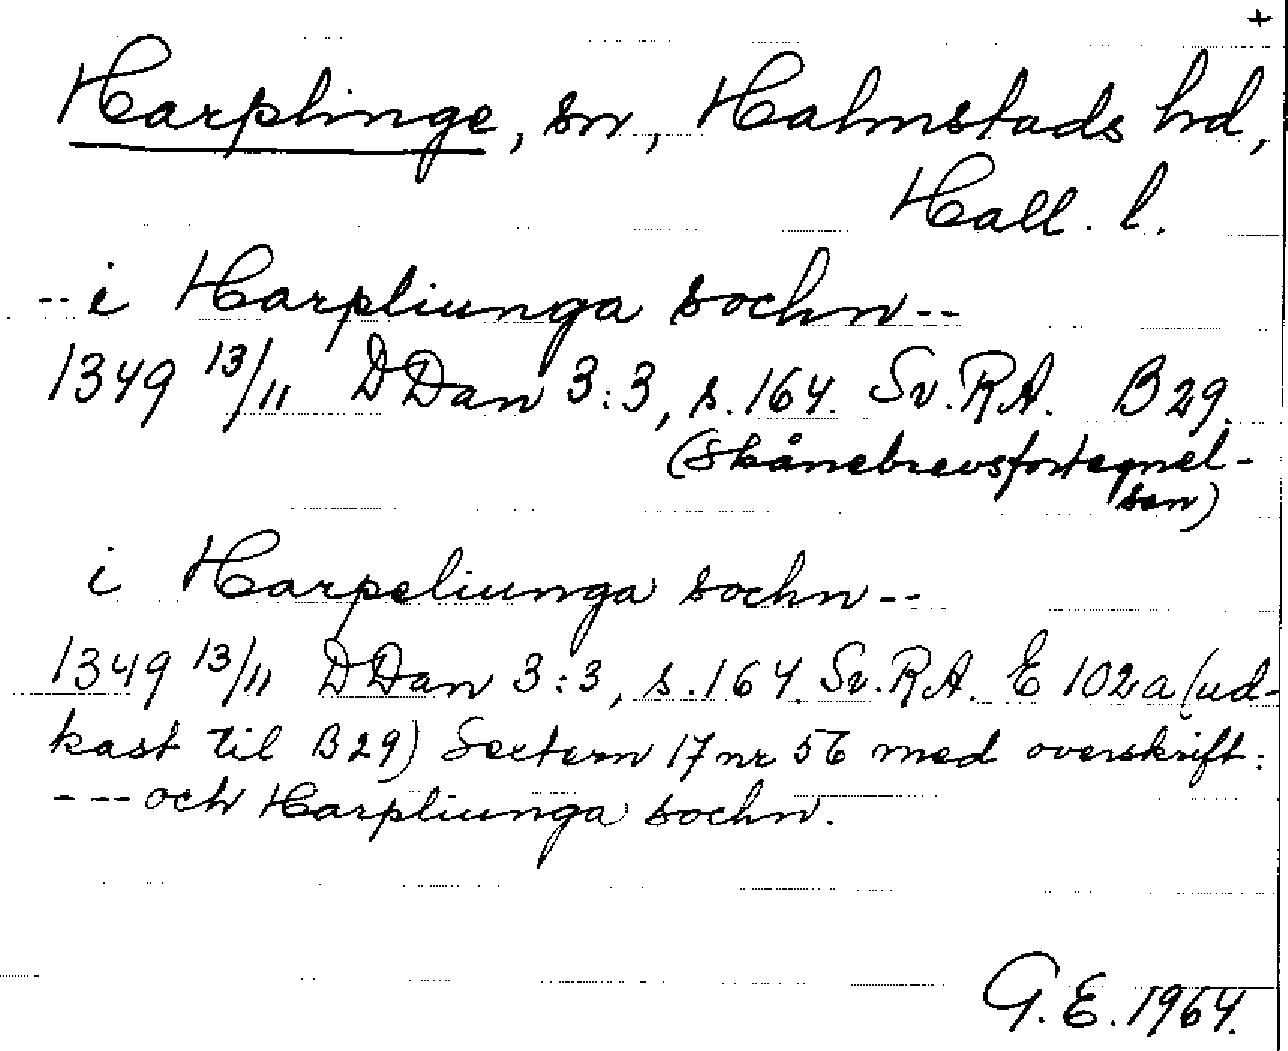 +
Harplinge, sn, Halmstads hd,
Hall. l.
-- i Harpliunga sochn --
1349 13/11 DDan 3:3, s. 164. Sv. RA. B 29.
(Skånebrevsfortegnel-
sen)
i Harpeliunga sochn --
1349 13/11 DDan 3:3, s. 164. Sv. RA. E 102a (ud-
kast til B 29) Sextern 17 nr 56 med overskrift:
--- och Harpliunga sochn.
G. E. 1964.